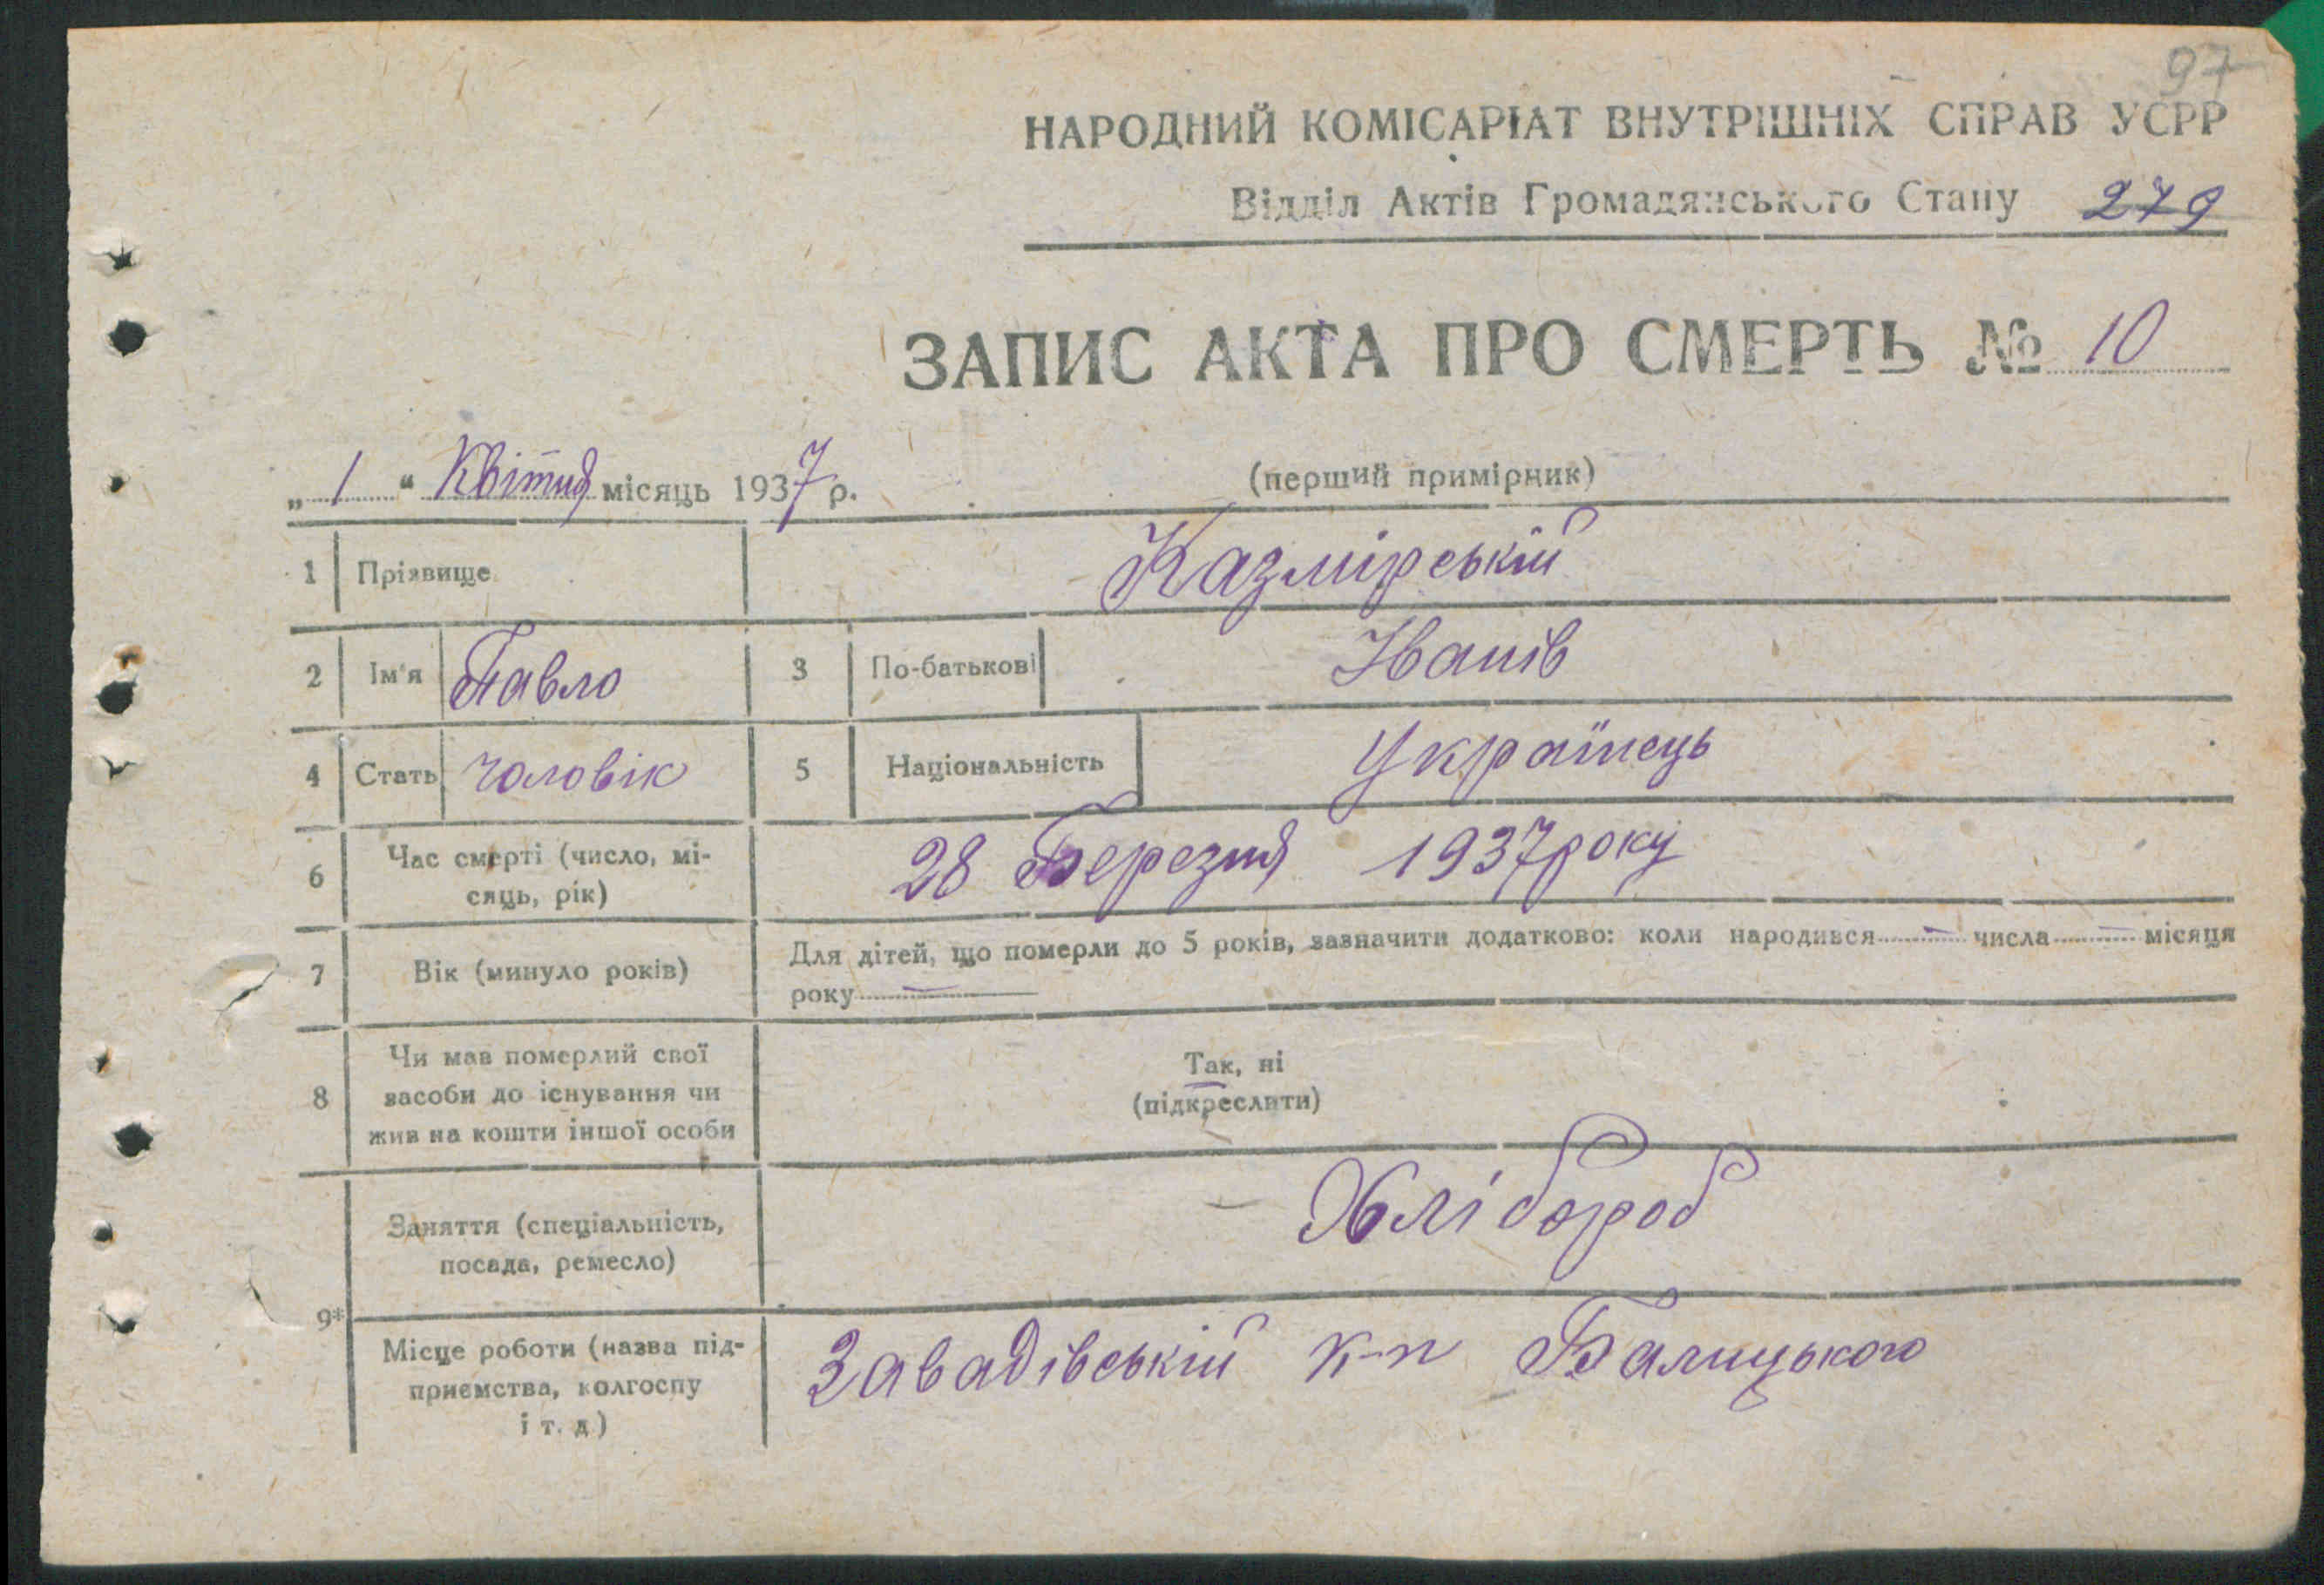 97
НАРОДНИЙ КОМІСАРІАТ ВНУТРІШНІХ СПРАВ УСРР
Відділ Актів Громадянського Стану 279
ЗАПИС АКТА ПРО СМЕРТЬ № 10
„ 1 “ Квітня місяць 1937 р. (перший примірник)
1 Прізвище Казмірській
2 Ім'я Павло 3 По-батькові Іванів
4 Стать чоловік 5 Національність Українець
6 Час смерті (число, мі-
сяць, рік) 28 Березня 1937 року
7 Вік (минуло років) Для дітей, що померли до 5 років, зазначити додатково: коли народився — числа — місяця
року —
8 Чи мав померлий свої
засоби до існування чи
жив на кошти іншої особи
Так, ні
(підкреслити)
9*
Заняття (спеціальність,
посада, ремесло)
Хлібороб
Місце роботи (назва під-
приємства, колгоспу
і т. д)
Завадівській к-п Балицького